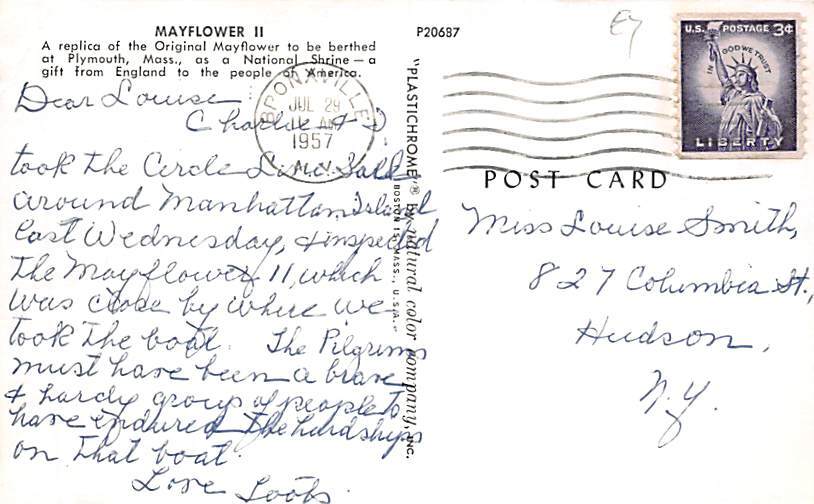 MAYFLOWER II
A replica of the Original Mayflower to be berthed
at Plymouth, Mass., as a National Shrine — a
gift from England to the people of America.
Dear Louise
Charlie & I
took the Circle Line Sail
around Manhattan Island
last Wednesday, & inspected
the Mayflower II, which
was close by where we
took the boat. The Pilgrims
must have been a brave
& hardy group of people to
have endured the hardships
on that boat.
Love Toots.
P20687
"PLASTICHROME"® by natural color company, INC.
BOSTON 15, MASS., U.S.A.
BRONXVILLE
JUL 29
AM
1957
N.Y.
U.S. POSTAGE 3¢
IN GOD WE TRUST
LIBERTY
POST CARD
Miss Louise Smith,
827 Columbia St.,
Hudson,
N.Y.